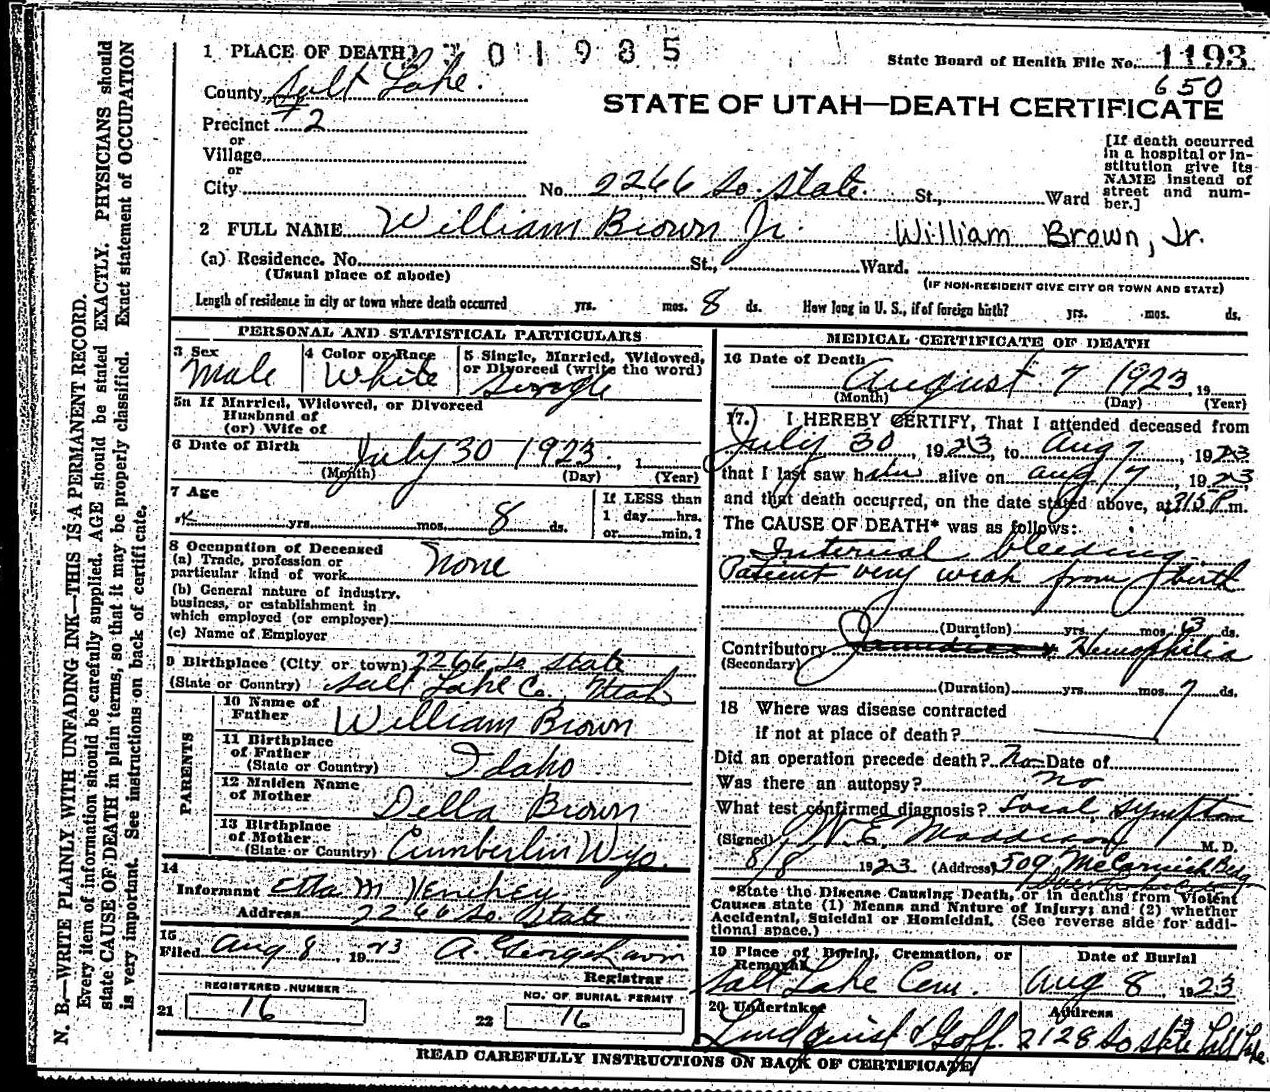 N. B.—WRITE PLAINLY WITH UNFADING INK—THIS IS A PERMANENT RECORD.
Every item of information should be carefully supplied. AGE should be stated EXACTLY. PHYSICIANS should
state CAUSE OF DEATH in plain terms, so that it may be properly classified. Exact statement of OCCUPATION
is very important. See instructions on back of certificate.
1 PLACE OF DEATH
01985
State Board of Health File No. 1193
650
County Salt Lake.
STATE OF UTAH—DEATH CERTIFICATE
Precinct #2
or
Village
or
City No. 2266 So. State. St., Ward
[If death occurred
in a hospital or in-
stitution give its
NAME instead of
street and num-
ber.]
2 FULL NAME William Brown Jr. William Brown, Jr.
(a) Residence. No. St., Ward.
(Usual place of abode) (IF NON-RESIDENT GIVE CITY OR TOWN AND STATE)
Length of residence in city or town where death occurred yrs. mos. 8 ds. How long in U. S., if of foreign birth? yrs. mos. ds.
PERSONAL AND STATISTICAL PARTICULARS
3 Sex
Male
4 Color or Race
White
5 Single, Married, Widowed,
or Divorced (write the word)
Single
5a If Married, Widowed, or Divorced
Husband of
(or) Wife of
6 Date of Birth
July 30 1923, 1
(Month) (Day) (Year)
7 Age
yrs. mos. 8 ds.
If LESS than
1 day hrs.
or min.?
8 Occupation of Deceased
(a) Trade, profession or
particular kind of work None
(b) General nature of industry,
business, or establishment in
which employed (or employer)
(c) Name of Employer
9 Birthplace (City or town) 2266 So State
(State or Country) Salt Lake Co. Utah
PARENTS
10 Name of
Father William Brown
11 Birthplace
of Father
(State or Country) Idaho
12 Maiden Name
of Mother Della Brown
13 Birthplace
of Mother
(State or Country) Cumberlin Wyo.
14
Informant Etta M
Address 2266 So State
15
Filed Aug 8, 1923 A. George
Registrar
REGISTERED NUMBER
21 16
NO. OF BURIAL PERMIT
22 16
MEDICAL CERTIFICATE OF DEATH
16 Date of Death
August 7 1923, 19
(Month) (Day) (Year)
17. I HEREBY CERTIFY, That I attended deceased from
July 30, 1923, to Aug 7, 1923
that I last saw h alive on Aug 7, 1923
and that death occurred, on the date stated above, at 315 P. m.
The CAUSE OF DEATH* was as follows:
Internal bleeding.
Patient very weak from birth
(Duration) yrs. mos. 3 ds.
Contributory Jaundice Hemophilia
(Secondary)
(Duration) yrs. mos. 7 ds.
18 Where was disease contracted
if not at place of death?
Did an operation precede death? No Date of
Was there an autopsy? no
What test confirmed diagnosis? Local symptom
(Signed) W. E. M. D.
8/8 1923 (Address) 509 McCornick Bldg
*State the Disease Causing Death, or in deaths from Violent
Causes state (1) Means and Nature of Injury; and (2) whether
Accidental, Suicidal or Homicidal. (See reverse side for addi-
tional space.)
19 Place of Burial, Cremation, or
Removal
Salt Lake Cem.
Date of Burial
Aug 8, 1923
20 Undertaker
Lindquist & Goff.
Address
2128 So State Salt Lake
READ CAREFULLY INSTRUCTIONS ON BACK OF CERTIFICATE